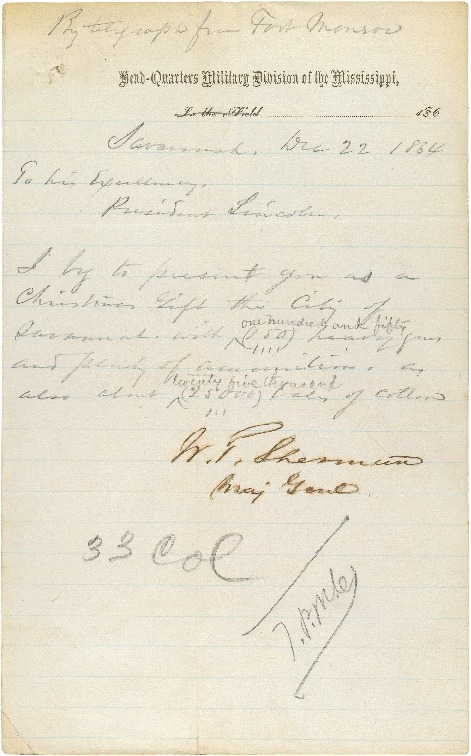 By telegraph from Fort Monroe
Head-Quarters Military Division of the Mississippi,
In the Field 186
Savannah, Dec 22 1864
To his Excellency,
President Lincoln,
I beg to present you as a
Christmas Gift the City of
one hundred and fifty
Savannah with (150) heavy guns
and plenty of ammunition, &
twenty five thousand
also about (25000) bales of cotton
W. T. Sherman
Maj Genl.
33 Col